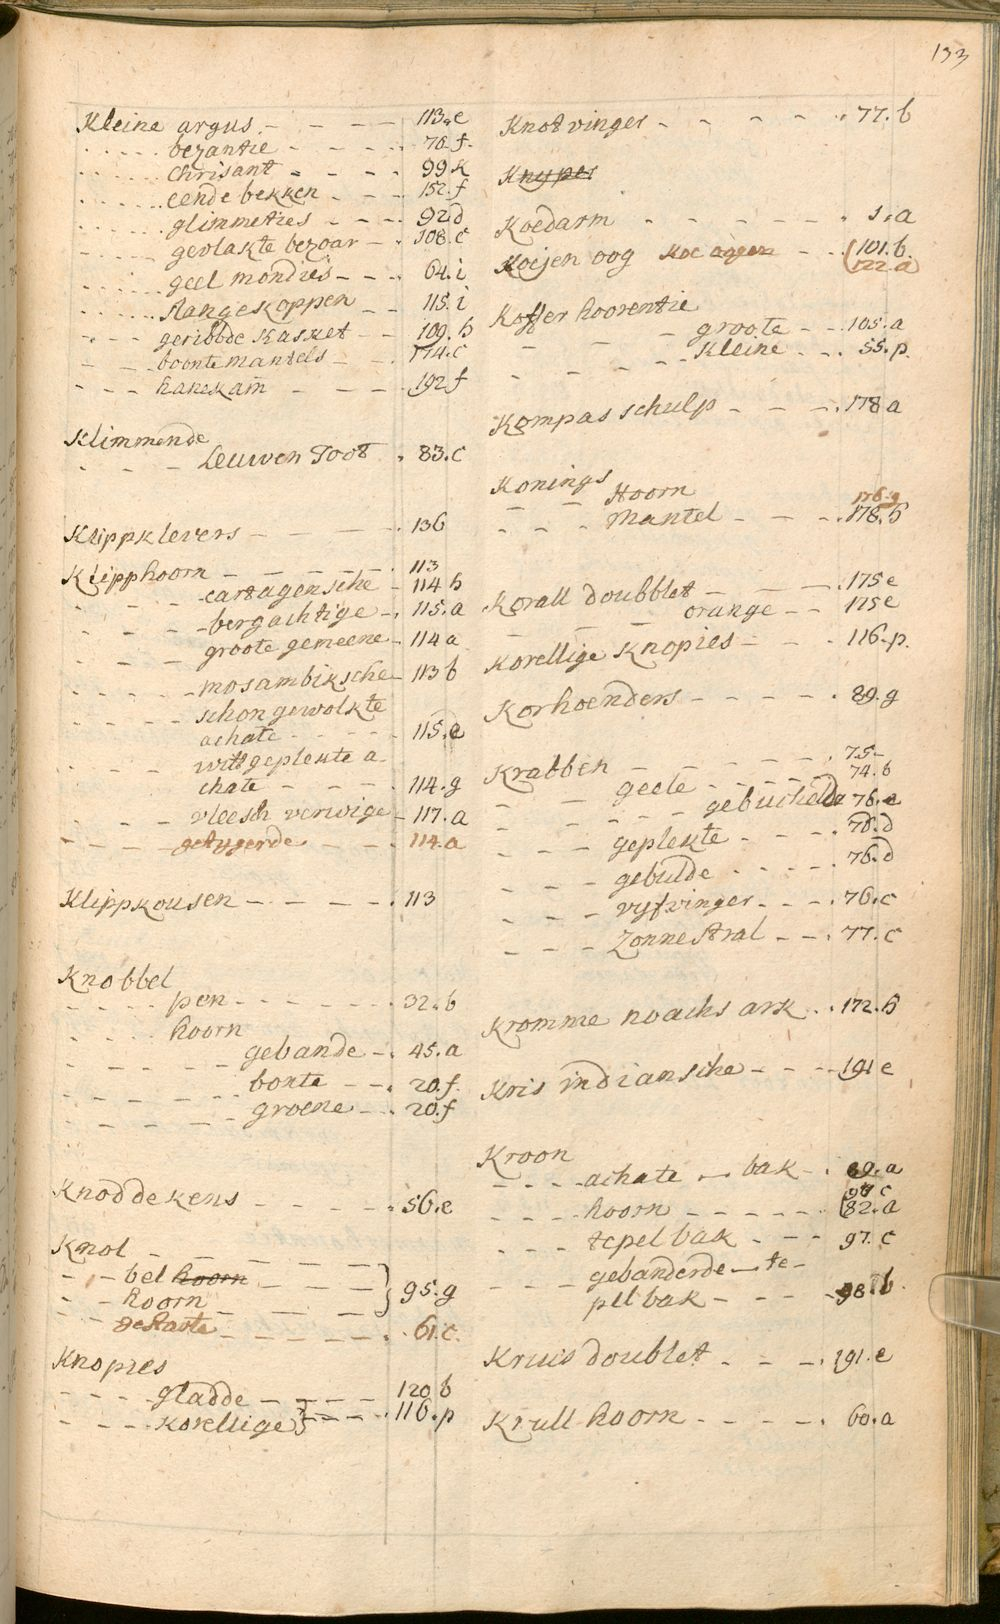 133
Kleine argus - - - - 113.e
bezantie - - - - 76.f.
chrisant - - - - 99 k
eende bekken - - - 152.f
glimmeties - - - 92 d
gevlakte bezoar - 108.c
geel mondies - - - 64.i
slangekoppen - - 115.i
geribbde Kasket - - 109.h
boonte mantels - - 174.c
hanekam - - - 192 f
Klimmende
Leuwen Toot . 83.c
Klippklevers - - - . 136
Klipphoorn - - - - - 113
cartagensche - 114 h
bergachtige - . 115.a
groote gemeene - 114 a
mosambiksche - 113 b
schon gewolkte
achate - - - - 115.e
witt geplekte a-
chate - - - - 114.g
vleesch verwige - 117.a
getygerde - - - 114.a
Klippkousen - - - - . 113
Knobbel
pen - - - - - - . 32.b
hoorn
gebande - . 45.a
bonte - - . 20.f.
groene - - . 20.f
Knoddekens - - - - . 56.e
Knol - - - - -
bel hoorn - - -
hoorn - - - } 95.g
gestarte - - - - . 61.c.
Knopies
gladde - - - - 120 b
korellige } - - - . 116.p
Knotvinger - - - - . 77.b
Knyper
Koedarm - - - - - . 1.a
Koejen oog Koe oogen - - (101.b.
(122 a
Koffer hoorentie
groote - - . 105.a
Kleine - - . 55.p.
Kompas schulp - - - . 178 a
Konings
Hoorn 176.g
Mantel - - - . 178.h
Korall doubblet - - - . 175 e
orange - - 175 e
Korellige Knopies - - - . 116.p.
Korhoenders - - - - - . 89.g
Krabben - - - - - . 75 -
geele - - - - - 74.b
gebuchelde 76.e
geplekte - - - . 76.d
gebulde - - - - . 76.d
vyfvinger - - - . 76.c
Zonnestral - - . 77.c
Kromme noachs ark . . 172.h
Kris indiansche - - - - 191 e
Kroon
achate - bak - . 89.a
97 c
hoorn - - - - - - (82.a
tepel bak - - - . 97.c
gebanderde - te-
pel bak - - - - 98 b.
Kruis doublet - - - . 191.e
Krull hoorn - - - - . 60.a